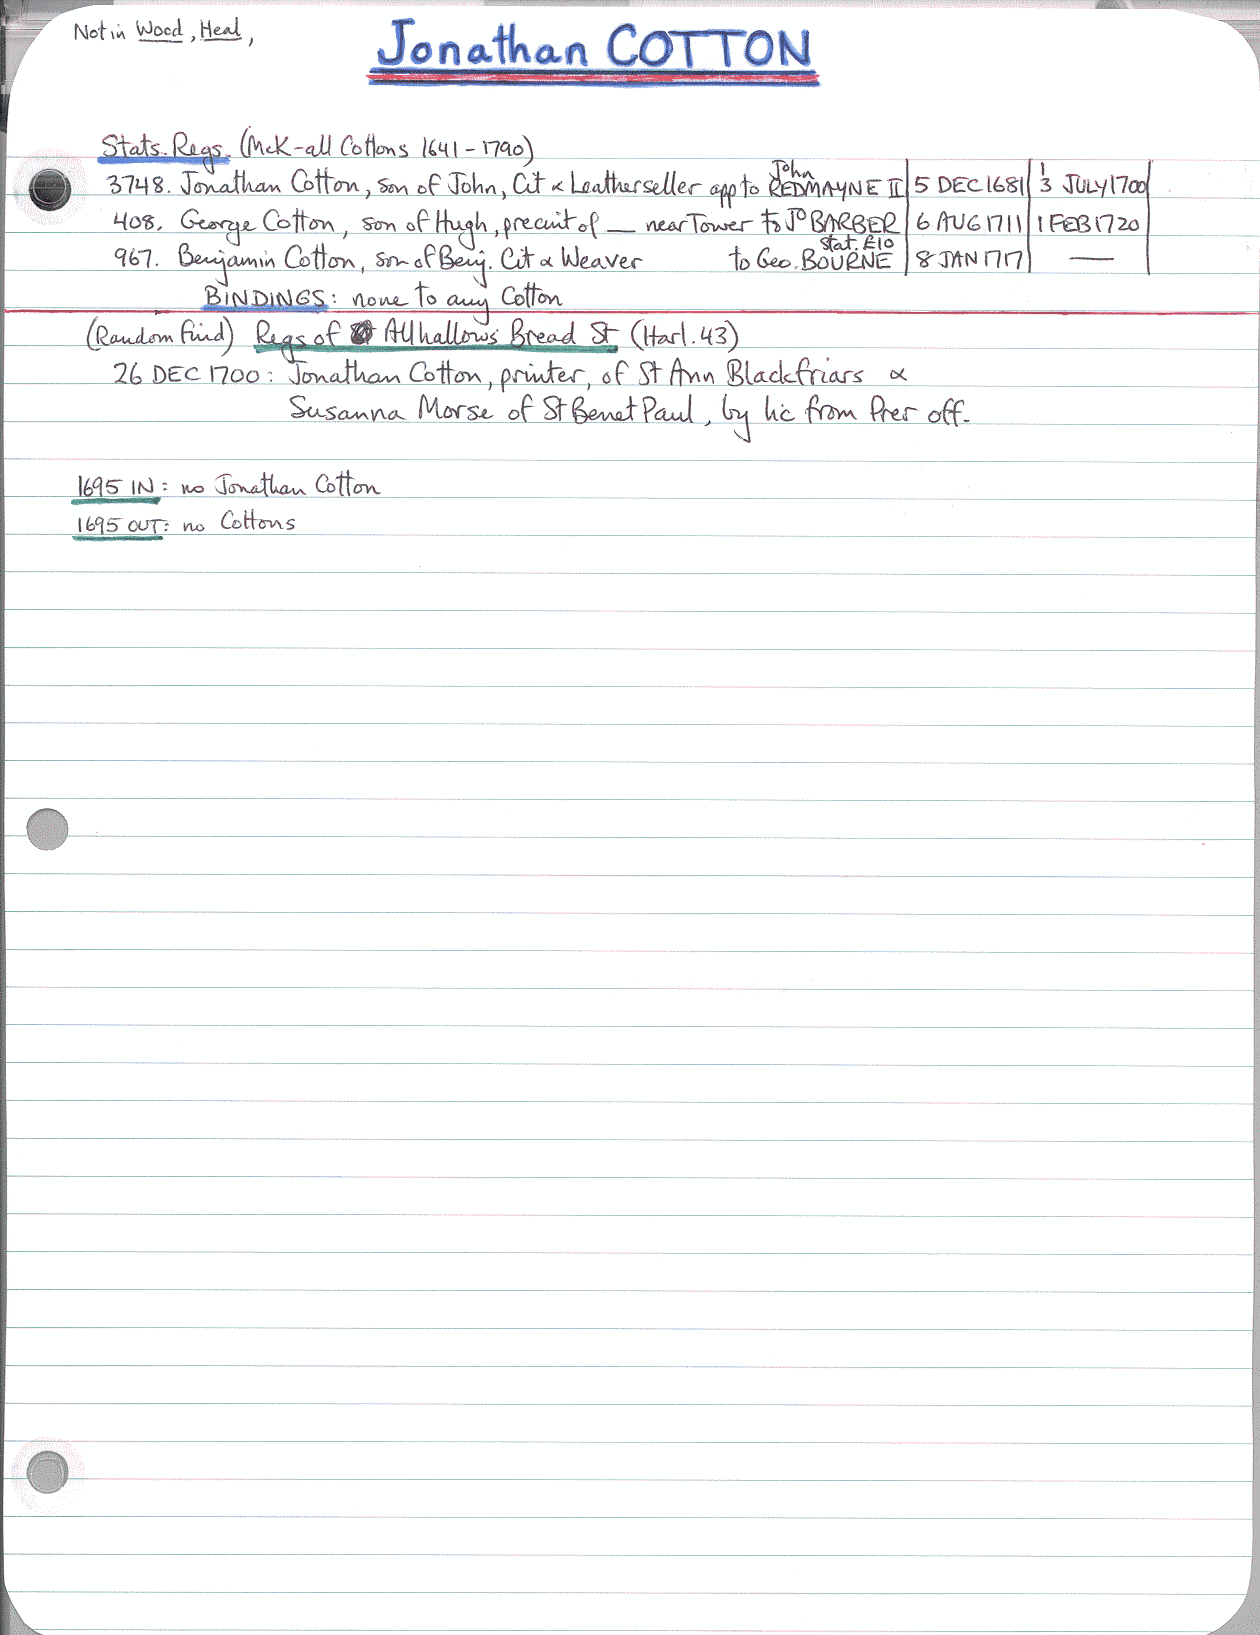 Not in Wood, Heal,
Jonathan COTTON
Stats. Regs. (McK-all Cottons 1641-1790)
3748. Jonathan Cotton, son of John, Cit & Leatherseller app to John REDMAYNE II 5 DEC 1681 1/3 JULY 1700
408. George Cotton, son of Hugh, precinct of — near Tower to Jo BARBER 6 AUG 1711 1 FEB 1720
967. Benjamin Cotton, son of Benj. Cit & Weaver to Geo. BOURNE Stat. £10 8 JAN 1717 —
BINDINGS: none to any Cotton
(Random Find) Regs of Allhallows Bread St (Harl. 43)
26 DEC 1700: Jonathan Cotton, printer, of St Ann Blackfriars &
Susanna Morse of St Benet Paul, by lic from Prer off.
1695 IN: no Jonathan Cotton
1695 OUT: no Cottons